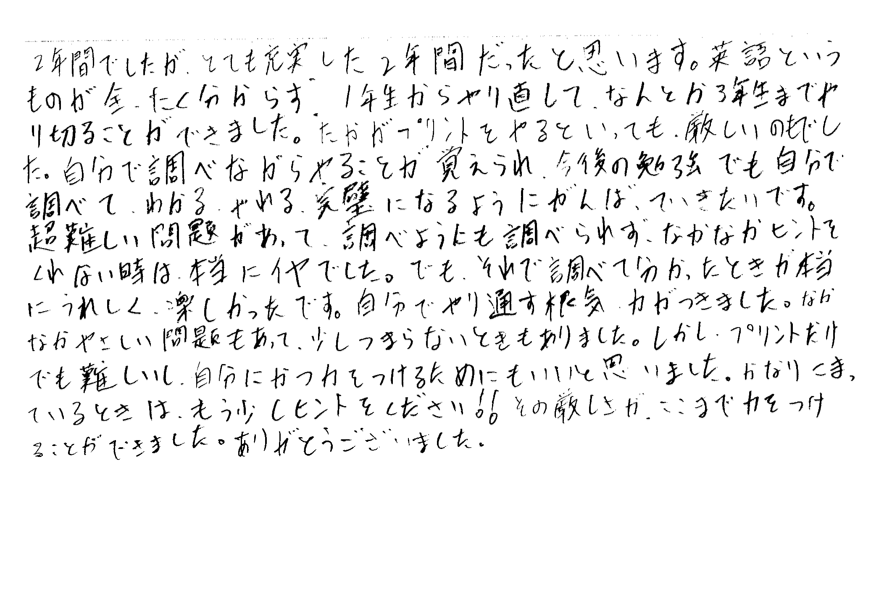 2年間でしたが、とても充実した2年間だったと思います。英語という
ものが全、たく分からず、1年生からやり直して、なんとか3年生までや
り切ることができました。たかがプリントをやるといっても、厳しいものでし
た。自分で調べながらやることが覚えられ、今後の勉強でも自分で
調べて、わかる、やれる、完璧になるようにがんばっていきたいです。
超難しい問題があって、調べようにも調べられず、なかなかヒントを
くれない時は、本当にイヤでした。でも、それで調べて分かったときが本当
にうれしく、楽しかったです。自分でやり通す根気、力がつきました。なか
なかやさしい問題もあって、少しつまらないときもありました。しかし、プリントだけ
でも難しいし、自分にかつ力をつけるためにもいいと思いました。かなりくまっ
ているときは、もう少しヒントをください!!その厳しさが、ここまで力をつけ
ることができました。ありがとうございました。